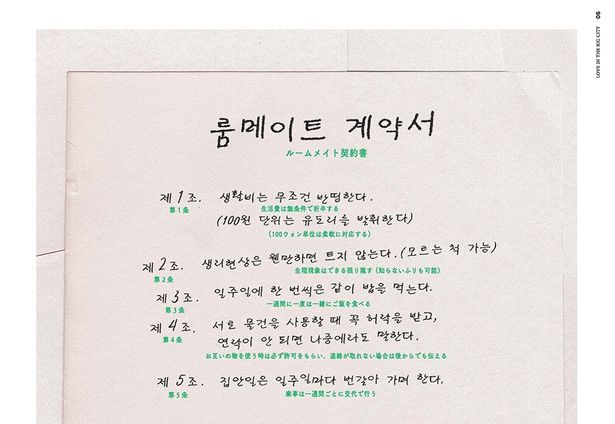 LOVE IN THE BIG CITY 05
룸메이트 계약서
ルームメイト契約書
제 1 조. 생활비는 무조건 반띵한다.
第1条 生活費は無条件で折半する
(100원 단위는 유도리를 발휘한다)
(100ウォン単位は柔軟に対応する)
제 2 조. 생리현상은 웬만하면 트지 않는다. (모르는 척 가능)
第2条 生理現象はできる限り隠す(知らないふりも可能)
제 3 조. 일주일에 한 번씩은 같이 밥을 먹는다.
第3条 一週間に一度は一緒にご飯を食べる
제 4 조. 서로 물건을 사용할 때 꼭 허락을 받고,
第4条 연락이 안 되면 나중에라도 말한다.
お互いの物を使う時は必ず許可をもらい、連絡が取れない場合は後からでも伝える
제 5 조. 집안일은 일주일마다 번갈아 가며 한다.
第5条 家事は一週間ごとに交代で行う